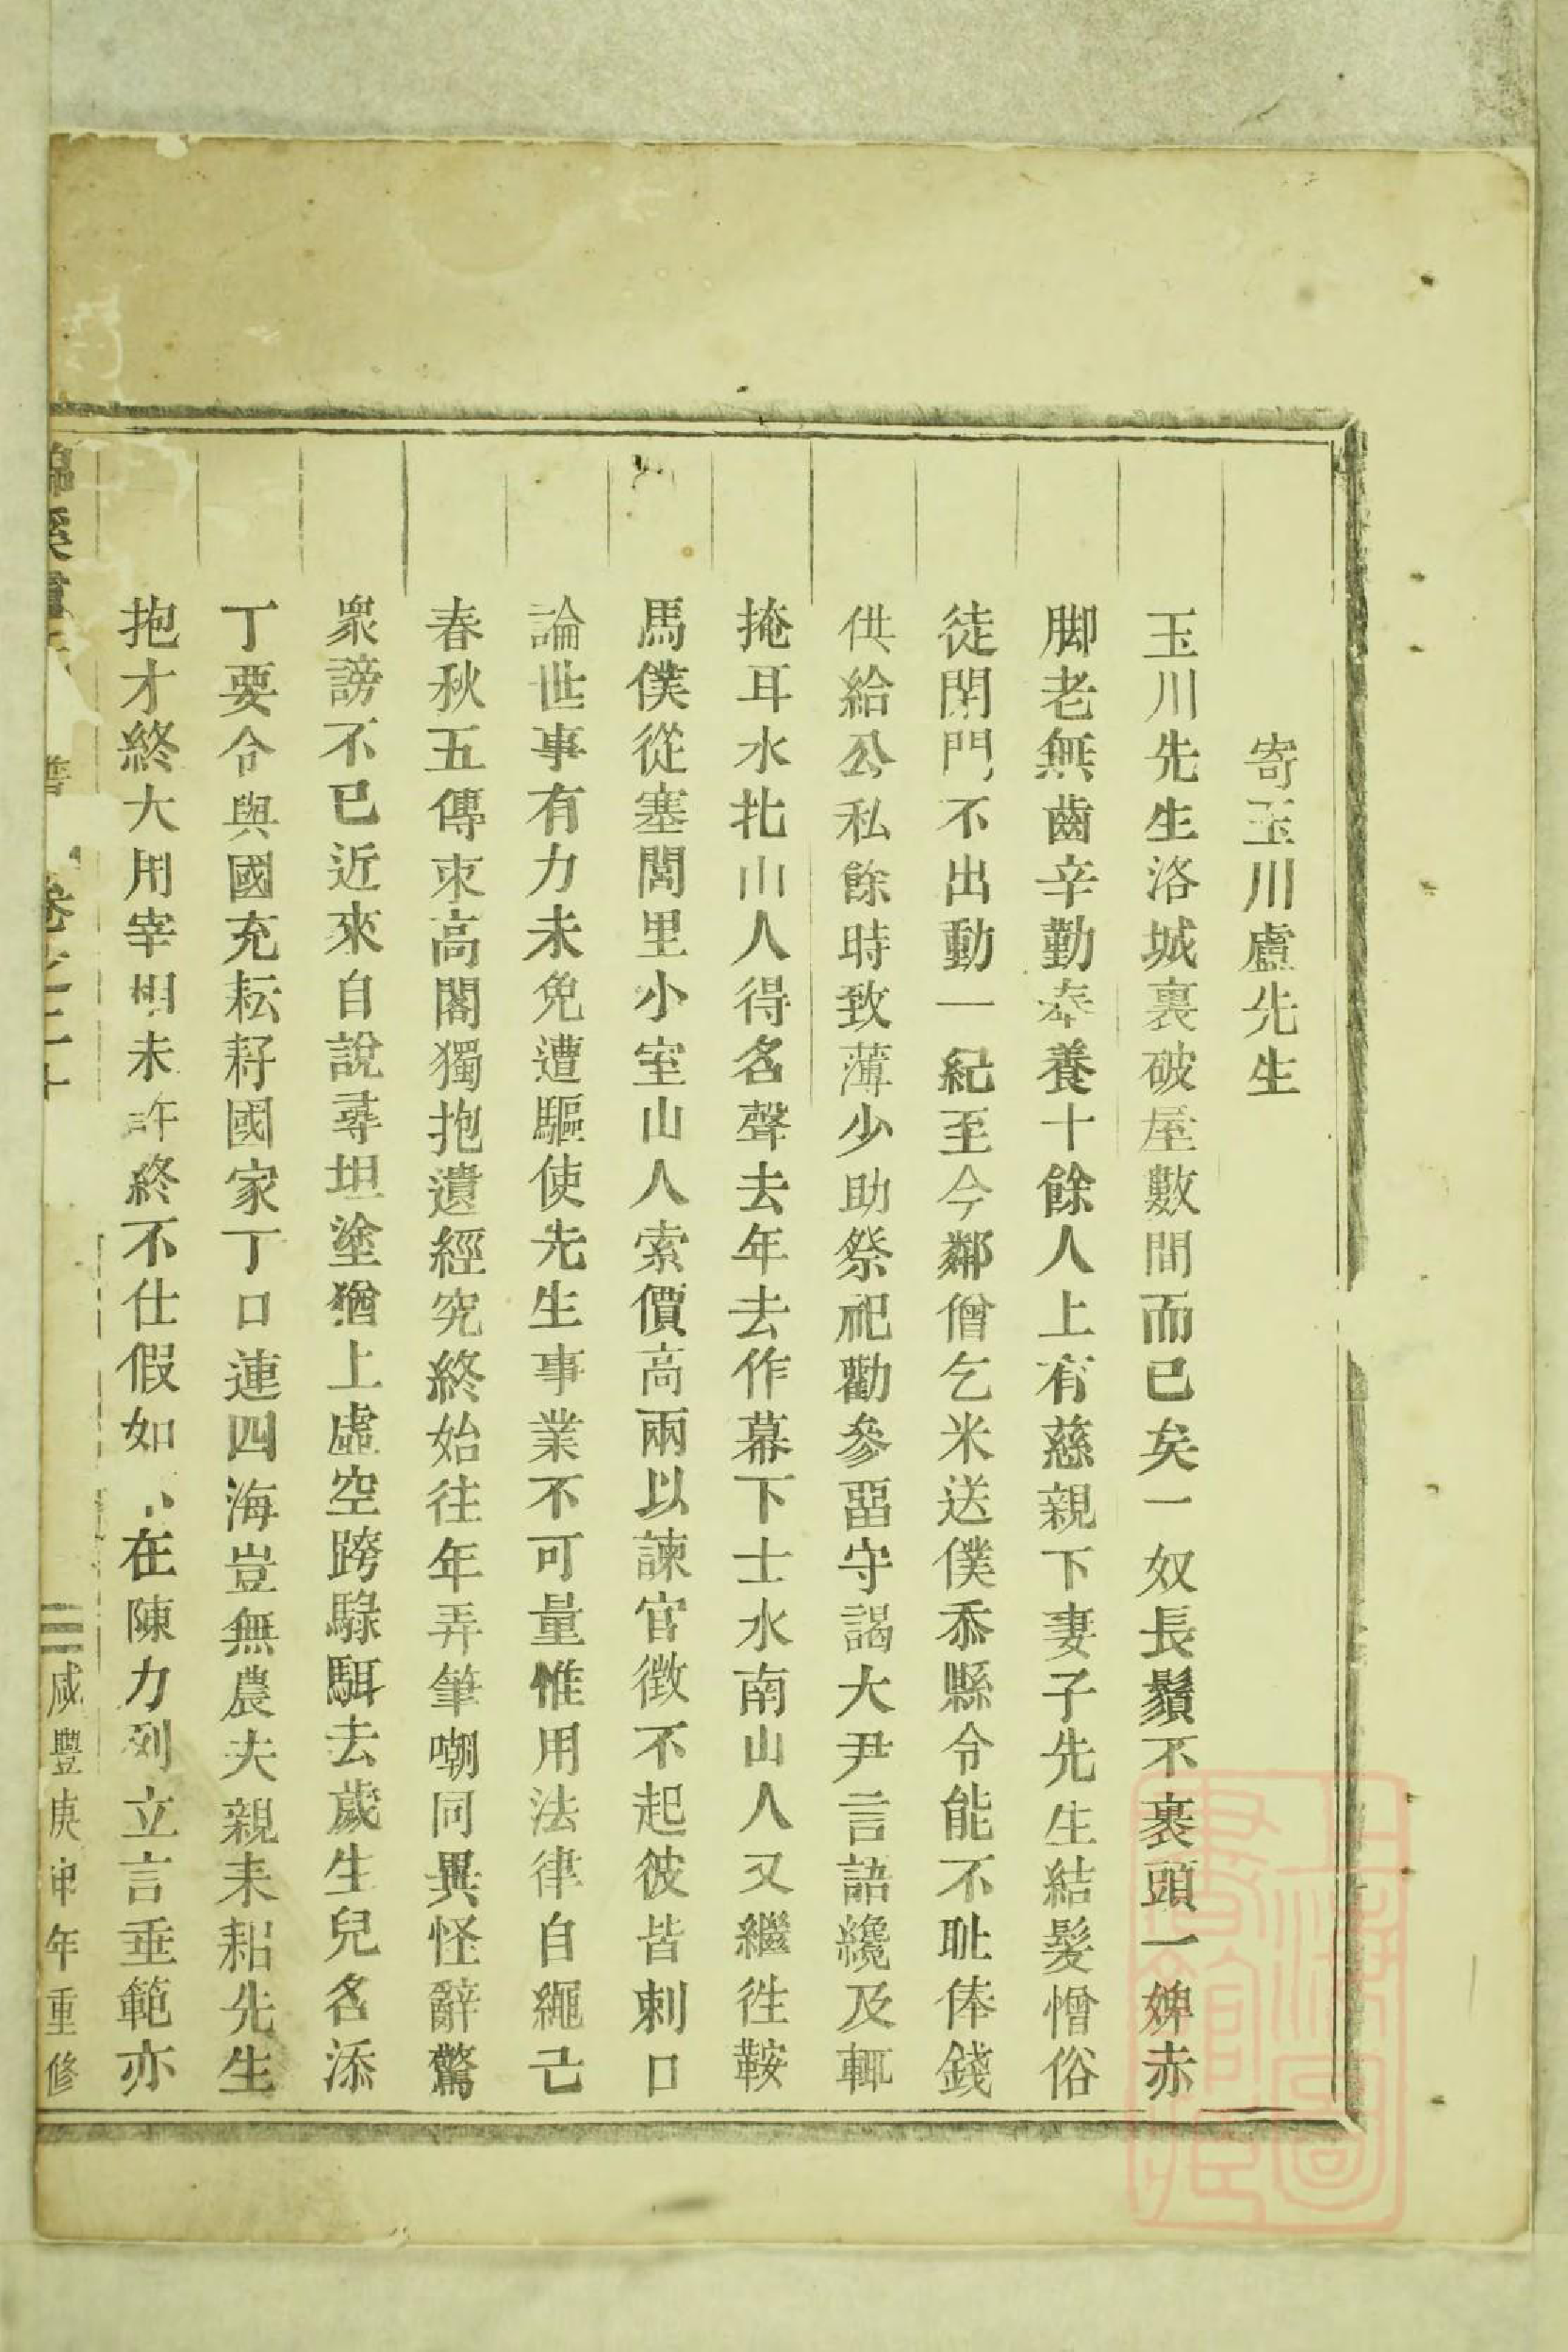 寄玉川盧先生
玉川先生洛城裏破屋數間而已矣一奴長鬚不裹頭一婢赤
脚老無齒辛勤奉養十餘人上有慈親下妻子先生結髮憎俗
徒閉門不出動一紀至今鄰僧乞米送僕忝縣令能不耻俸錢
供給公私餘時致薄少助祭祀勸參畱守謁大尹言語纔及輒
掩耳水北山人得名聲去年去作幕下士水南山人又繼徃鞍
馬僕從塞閭里小室山人索價高兩以諫官徵不起彼皆刺口
論世事有力未免遭驅使先生事業不可量惟用法律自繩己
春秋五傳束高閣獨抱遺經究終始往年弄筆嘲同異怪辭驚
衆謗不已近來自說尋坦塗猶上虛空跨騄駬去歲生兒名添
丁要令與國充耘耔國家丁口連四海豈無農夫親耒耜先生
抱才終大用宰相未許終不仕假如在陳力列立言垂範亦
譜
卷之二十
三
咸豐庚申年重修
上海圖書館藏